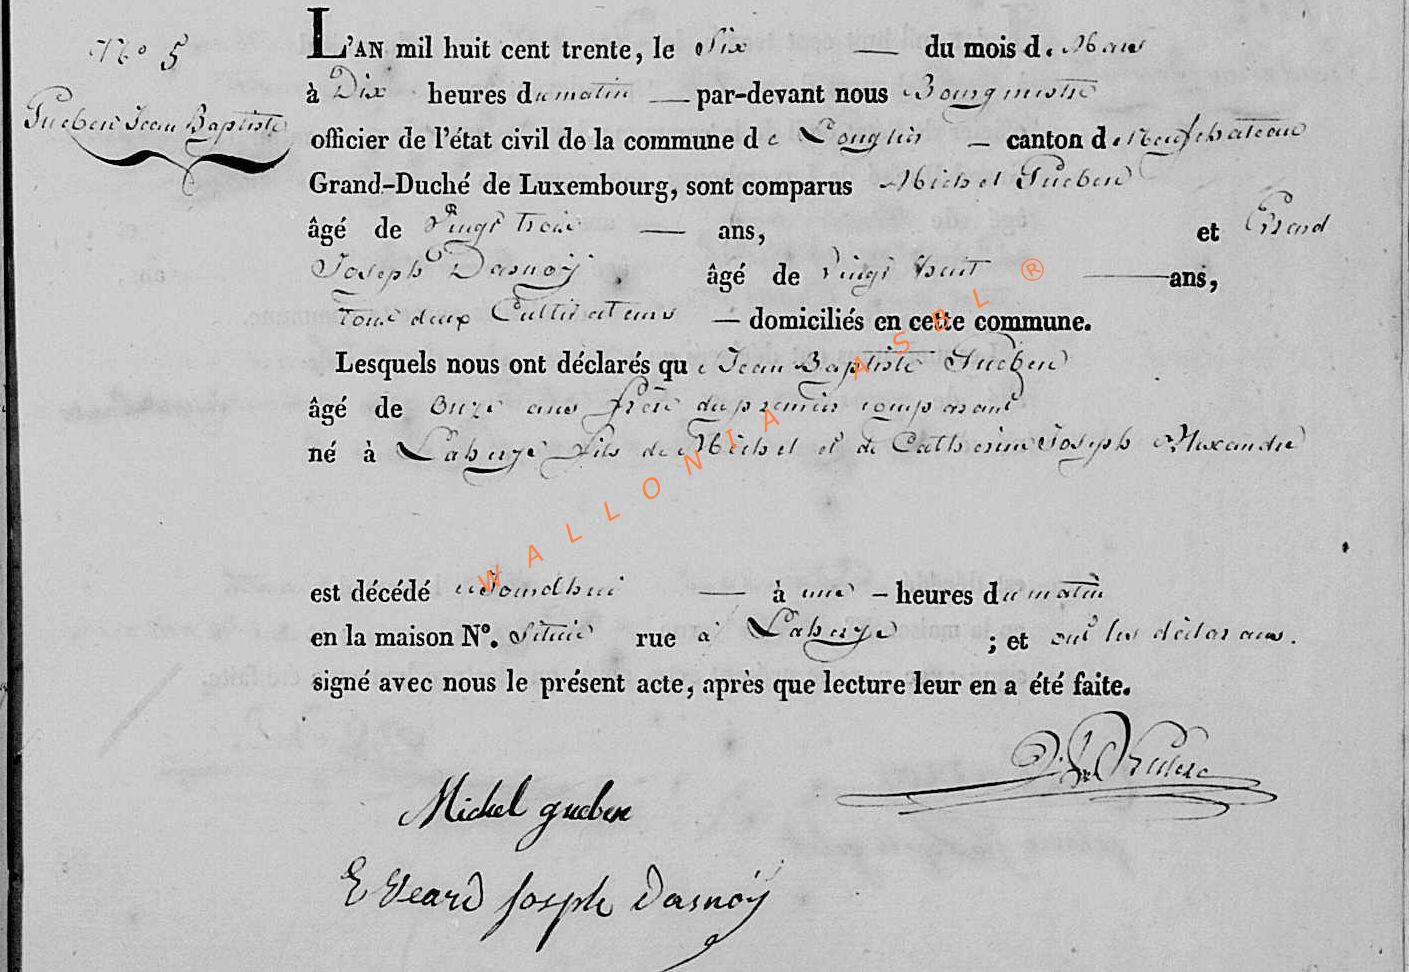 N° 5
Gueben Jean Baptiste
L'AN mil huit cent trente, le Six — du mois de Mars
à Dix heures du matin — par-devant nous Bourgmestre
officier de l'état civil de la commune de Longlier — canton de Neufchateau
Grand-Duché de Luxembourg, sont comparus Michel Gueben
âgé de Vingt trois — ans, et Erard
Joseph Dasnoÿ. âgé de Vingt huit — ans,
tous deux Cultivateurs — domiciliés en cette commune.
Lesquels nous ont déclarés que Jean Baptiste Gueben
âgé de Onze ans frère du premier comparant
né à Laherye fils de Michel et de Catherine Joseph Alexandre
est décédé aujourdhui — à une — heures du matin
en la maison N°. Située rue à Laherye ; et ont les déclarans.
signé avec nous le présent acte, après que lecture leur en a été faite.
Michel gueben
Erard Joseph Dasnoÿ
WALLONIA ASBL ®